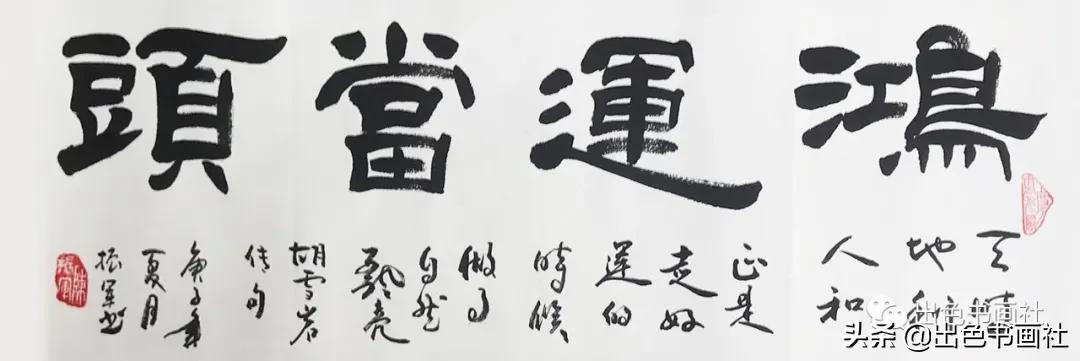 鴻運當頭
天時
地利
人和
正是
走好
運的
時候
做事
自然
飄亮
胡雪岩
传句
庚子年
夏月
振军书
出色书画社
头条 @出色书画社